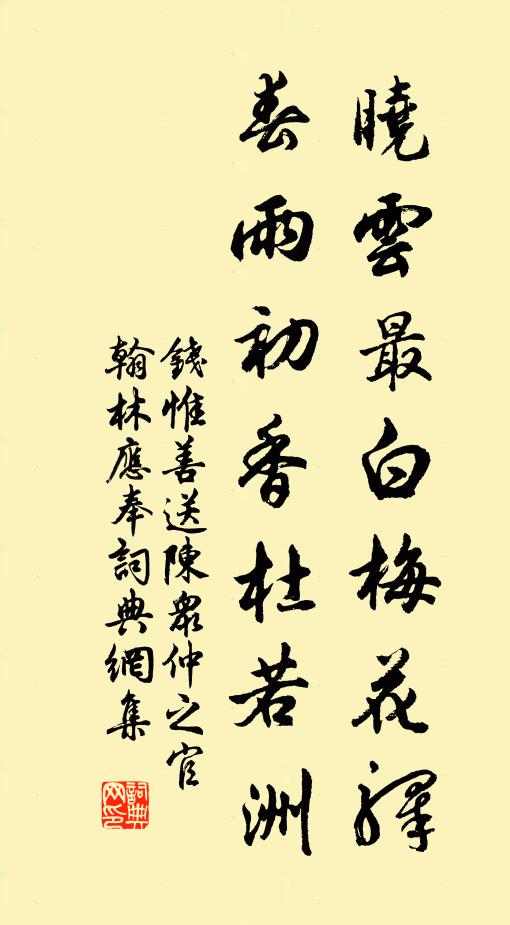 曉雲最白梅花驛
春雨初香杜若洲
錢惟善送陳眾仲之官
翰林應奉詞典網集
詞典网印